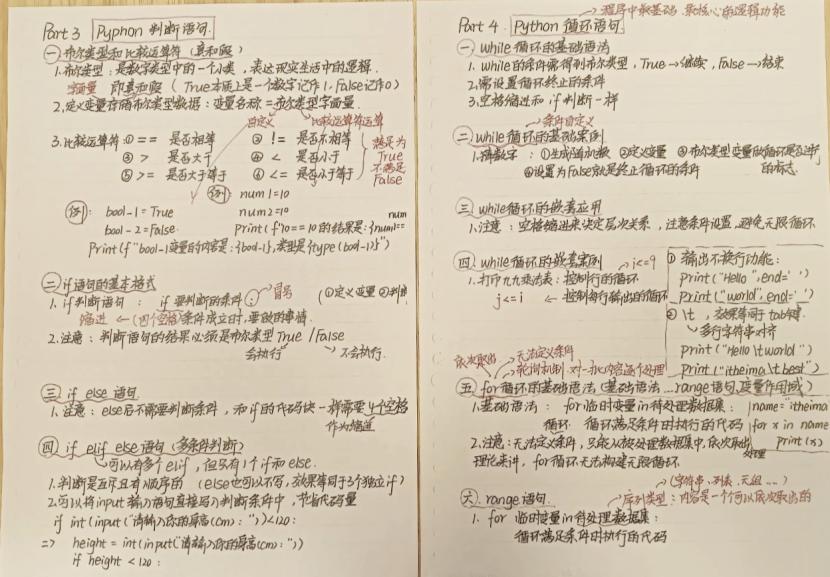 Part 3 Pyphon 判断语句.
一 布尔类型和比较运算符 (真和假)
1.布尔类型：是数字类型中的一个小类，表达现实生活中的逻辑.
字面量 即真和假 (True本质上是一个数字记作1，False记作0)
2.定义变量存储布尔类型数据：变量名称=布尔类型字面量
自定义 比较运算符运算
3.比较运算符：① == 是否相等 ② != 是否不相等
③ > 是否大于 ④ < 是否小于
⑤ >= 是否大于等于 ⑥ <= 是否小于等于
满足为
True
不满足
False
例: num1=10
例: bool-1=True num2=10 num
bool-2=False. print(f"10==10的结果是:{num1==
Print(f"bool-1变量的内容是:{bool-1},类型是{type(bool-1)}")
二 if语句的基本格式
1. if判断语句： if 要判断的条件： 冒号 (①定义变量 ②判断
缩进 ←(四个空格)条件成立时，要做的事情.
2.注意：判断语句的结果必须是布尔类型True/False
会执行 不会执行.
三 if else 语句
1.注意：else后不需要判断条件，和if的代码块一样需要4个空格
作为缩进
四 if elif else语句(多条件判断)
可以有多个elif，但只有1个if和else.
1.判断是互斥且有顺序的 (else也可以不写，效果等同于3个独立if)
2.可以将input输入语句直接写入判断条件中，节省代码量
if int(input("请输入你的身高(cm)："))<120:
=> height = int(input("请输入你的身高(cm)："))
if height < 120 :
程序中最基础 最核心的逻辑功能
Part 4. Python 循环语句.
一 while循环的基础语法
1. while的条件需得到布尔类型，True→继续，False→结束
2.需设置循环终止的条件
3.空格缩进和 if 判断一样
条件自定义
二 while循环的基础案例
1.猜数字：①生成随机数 ②定义变量 ③布尔类型变量做循环是否进行
④设置为False就是终止循环的条件 的标志.
三 while循环的嵌套应用
1.注意：空格缩进来决定层次关系，注意条件设置，避免无限循环.
四 while循环的嵌套案例 i<=9
1.打印九九乘法表：控制行的循环
j<=i ← 控制每行输出的循环
① 输出不换行功能：
print("Hello",end=' ')
Print("world",end=' ')
② \t，效果等同于tab键.
多行字符串对齐
print("Hello\tworld")
Print("itheima\tbest")
依次取出 无法定义条件
轮询机制.对一批内容逐个处理
五 for循环的基础语法(基础语法...range语句,变量作用域)
1.基础语法： for临时变量in待处理数据集： name="itheima
循环 循环满足条件时执行的代码 for x in name
2.注意：无法定义条件，只能从被处理数据集中，依次取出 print(x)
处理
理论来讲，for循环无法构建无限循环.
(字符串、列表、元组...)
六 range语句. 序列类型：内容是一个个可以依次取出的
1. for 临时变量 in 待处理数据集：
循环满足条件时执行的代码